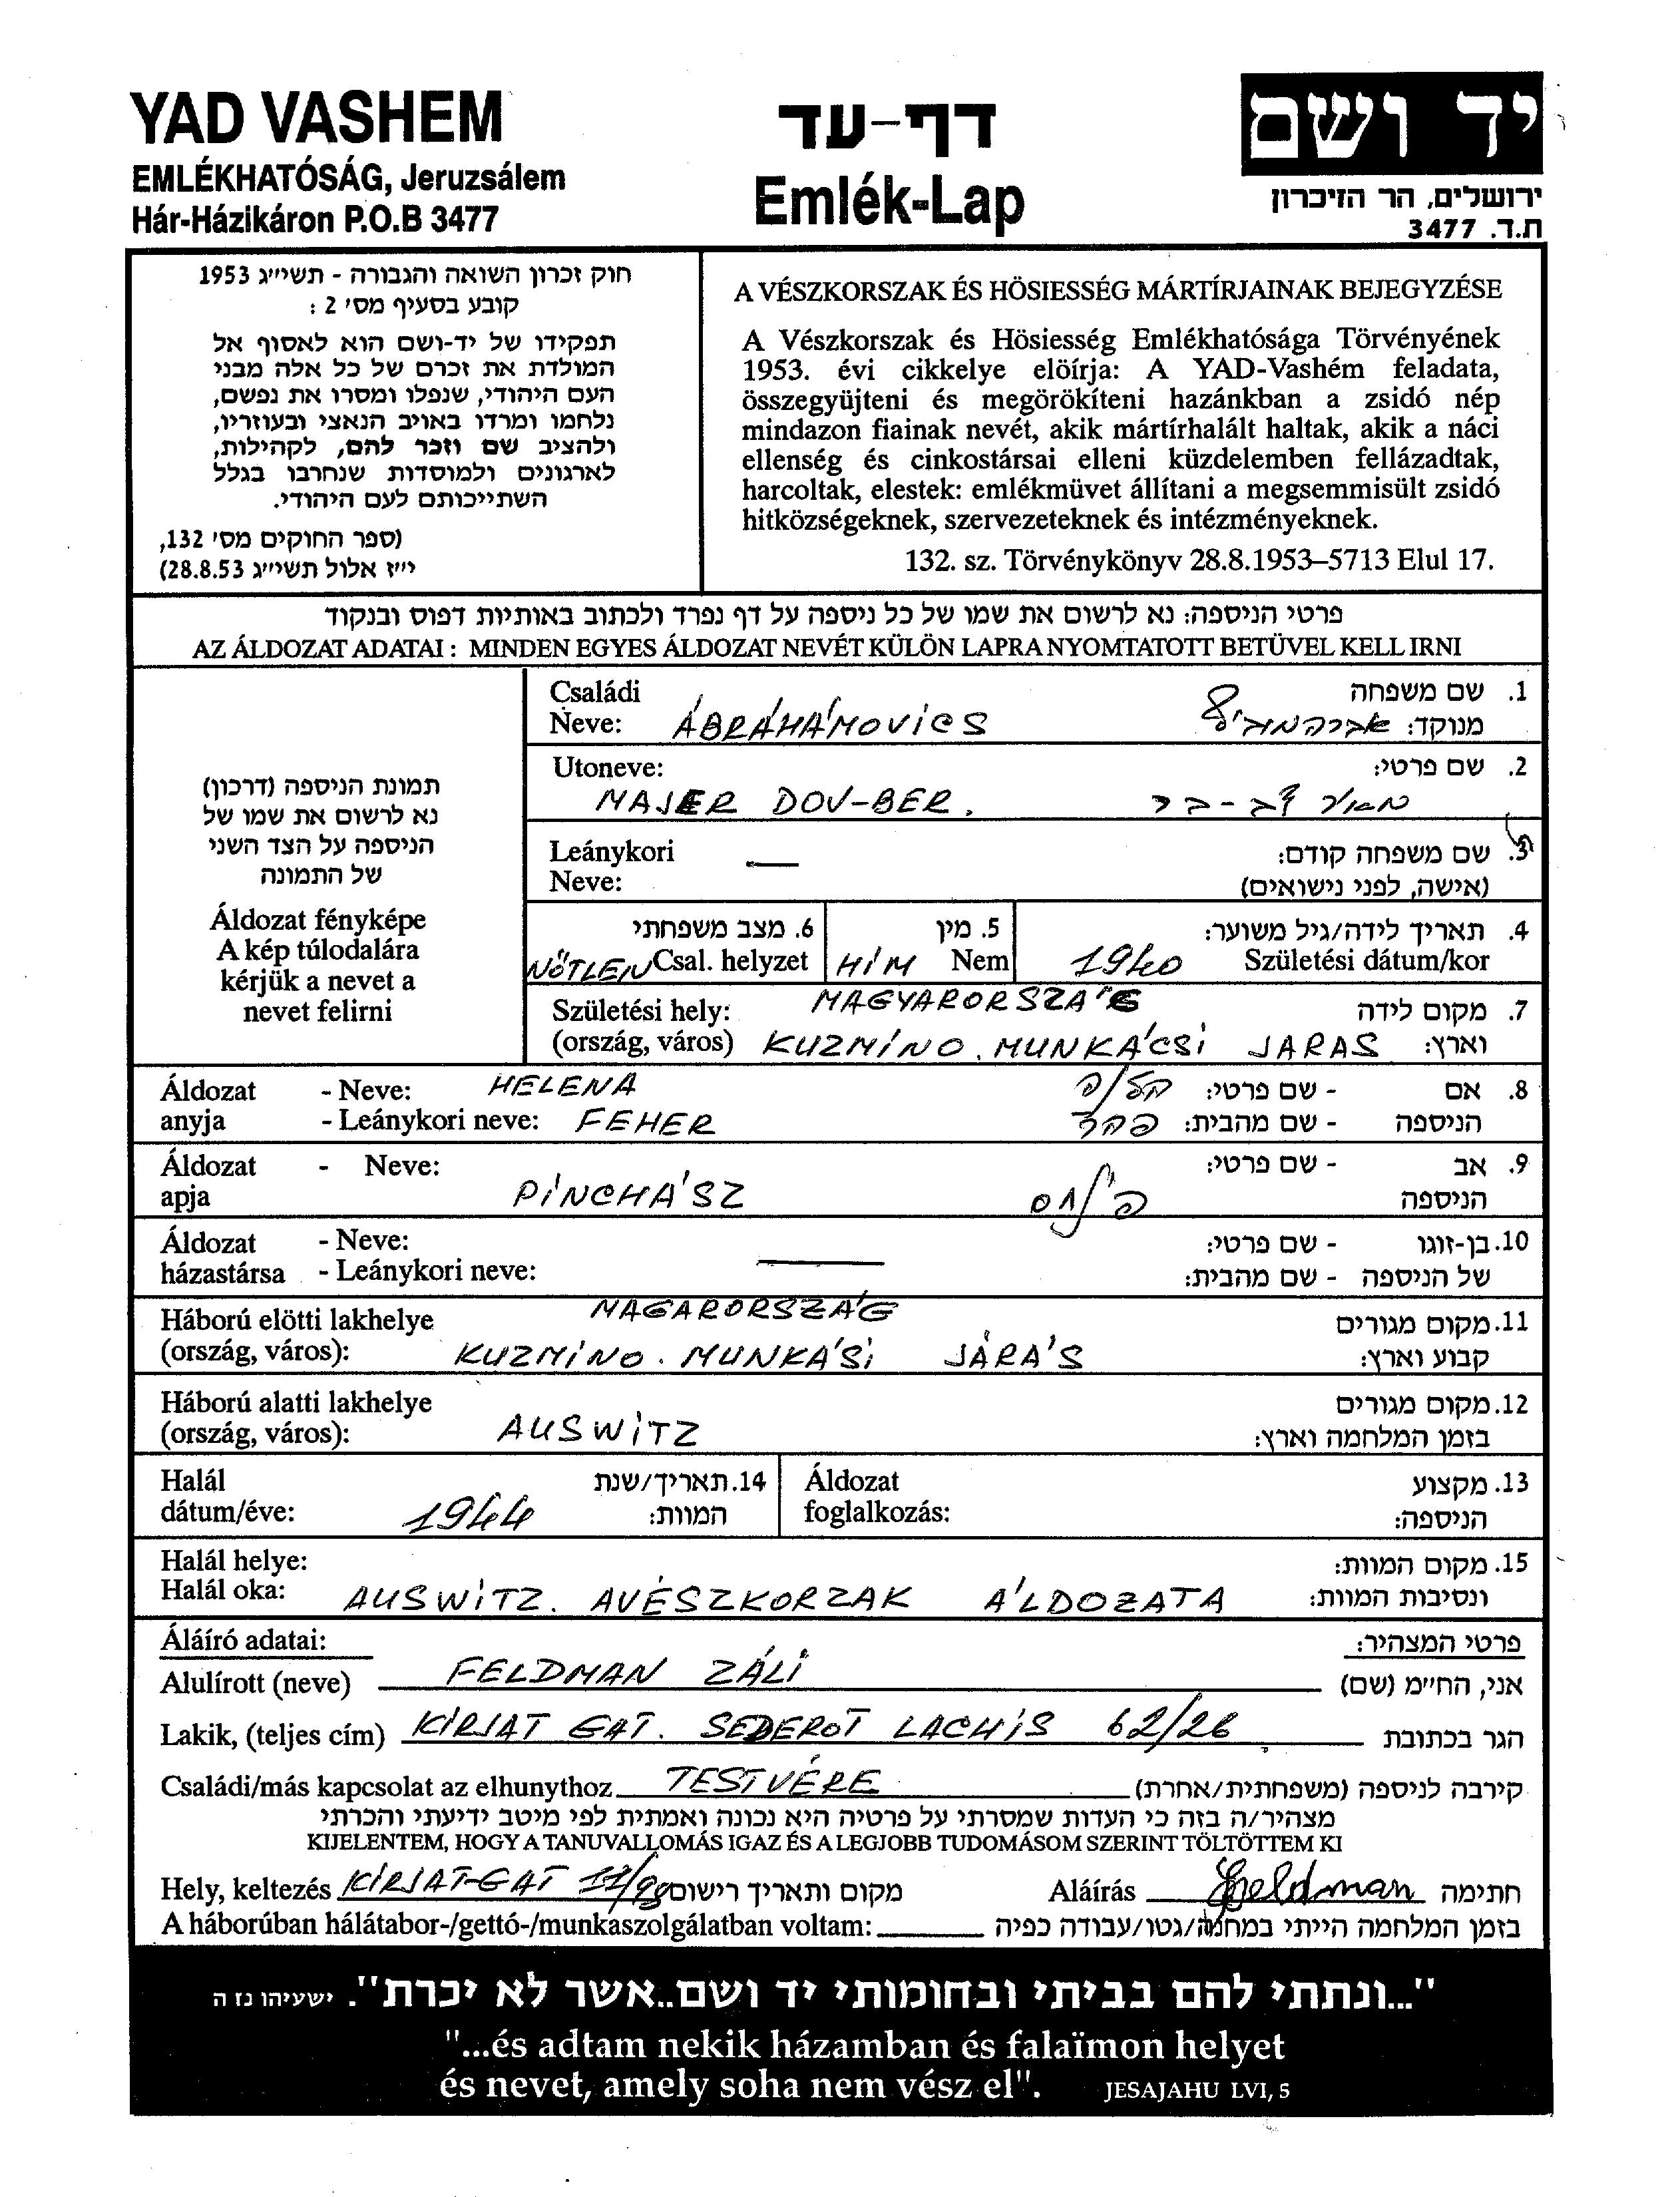 YAD VASHEM
EMLÉKHATÓSÁG, Jeruzsálem
Hár-Házikáron P.O.B 3477
דף-עד
Emlék-Lap
יד ושם
ירושלים, הר הזיכרון
ת.ד. 3477
חוק זכרון השואה והגבורה - תשי״ג 1953
קובע בסעיף מס׳ 2 :
תפקידו של יד-ושם הוא לאסוף אל
המולדת את זכרם של כל אלה מבני
העם היהודי, שנפלו ומסרו את נפשם,
נלחמו ומרדו באויב הנאצי ובעוזריו,
ולהציב שם וזכר להם, לקהילות,
לארגונים ולמוסדות שנחרבו בגלל
השתייכותם לעם היהודי.
(ספר החוקים מס׳ 132,
י״ז אלול תשי״ג 28.8.53)
A VÉSZKORSZAK ÉS HÖSIESSÉG MÁRTÍRJAINAK BEJEGYZÉSE
A Vészkorszak és Hösiesség Emlékhatósága Törvényének
1953. évi cikkelye elöírja: A YAD-Vashém feladata,
összegyüjteni és megörökíteni hazánkban a zsidó nép
mindazon fiainak nevét, akik mártírhalált haltak, akik a náci
ellenség és cinkostársai elleni küzdelemben fellázadtak,
harcoltak, elestek: emlékmüvet állítani a megsemmisült zsidó
hitközségeknek, szervezeteknek és intézményeknek.
132. sz. Törvénykönyv 28.8.1953–5713 Elul 17.
פרטי הניספה: נא לרשום את שמו של כל ניספה על דף נפרד ולכתוב באותיות דפוס ובנקוד
AZ ÁLDOZAT ADATAI : MINDEN EGYES ÁLDOZAT NEVÉT KÜLÖN LAPRA NYOMTATOTT BETÜVEL KELL IRNI
תמונת הניספה (דרכון)
נא לרשום את שמו של
הניספה על הצד השני
של התמונה
Áldozat fényképe
A kép túlodalára
kérjük a nevet a
nevet felirni
Családi
Neve: ÁBRÁHÁMOVICS
1. שם משפחה
מנוקד: אברהמוביץ
Utoneve:
MAJER DOV-BER.
2. שם פרטי:
מאיר דב-בר
Leánykori
Neve: —
3. שם משפחה קודם:
(אישה, לפני נישואים)
4. תאריך לידה/גיל משוער:
1940 Születési dátum/kor
5. מין
HÍM Nem
6. מצב משפחתי
NŐTLEN Csal. helyzet
Születési hely: MAGYARORSZÁG
(ország, város) KUZMINO. MUNKÁCSI JARAS
7. מקום לידה
וארץ:
Áldozat - Neve: HELENA
anyja - Leánykori neve: FEHER
8. אם - שם פרטי:
הניספה - שם מהבית: פהר
Áldozat - Neve:
apja PINCHÁSZ
9. אב - שם פרטי:
הניספה פינחס
Áldozat - Neve:
házastársa - Leánykori neve: —
10. בן-זוגו - שם פרטי:
של הניספה - שם מהבית:
Háború elötti lakhelye MAGARORSZÁG
(ország, város): KUZMINO. MUNKÁSI JÁRÁS
11. מקום מגורים
קבוע וארץ:
Háború alatti lakhelye
(ország, város): AUSWITZ
12. מקום מגורים
בזמן המלחמה וארץ:
Halál
dátum/éve: 1944
14. תאריך/שנת
המוות:
Áldozat
foglalkozás:
13. מקצוע
הניספה:
Halál helye:
Halál oka: AUSWITZ. AVÉSZKORZAK ÁLDOZATA
15. מקום המוות:
ונסיבות המוות:
Áláíró adatai:
פרטי המצהיר:
Alulírott (neve) FELDMAN ZÁLI אני, החי״מ (שם)
Lakik, (teljes cím) KIRJAT GAT. SEDEROT LACHIS 62/26 הגר בכתובת
Családi/más kapcsolat az elhunythoz TESTVÉRE קירבה לניספה (משפחתית/אחרת)
מצהיר/ה בזה כי העדות שמסרתי על פרטיה היא נכונה ואמתית לפי מיטב ידיעתי והכרתי
KIJELENTEM, HOGY A TANUVALLOMÁS IGAZ ÉS A LEGJOBB TUDOMÁSOM SZERINT TÖLTÖTTEM KI
Hely, keltezés KIRJAT-GAT מקום ותאריך רישום Aláírás Feldman חתימה
A háborúban hálátabor-/gettó-/munkaszolgálatban voltam: בזמן המלחמה הייתי במחנה/גטו/עבודה כפיה
"...ונתתי להם בביתי ובחומותי יד ושם..אשר לא יכרת". ישעיהו נז ה
"...és adtam nekik házamban és falaïmon helyet
és nevet, amely soha nem vész el". JESAJAHU LVI, 5